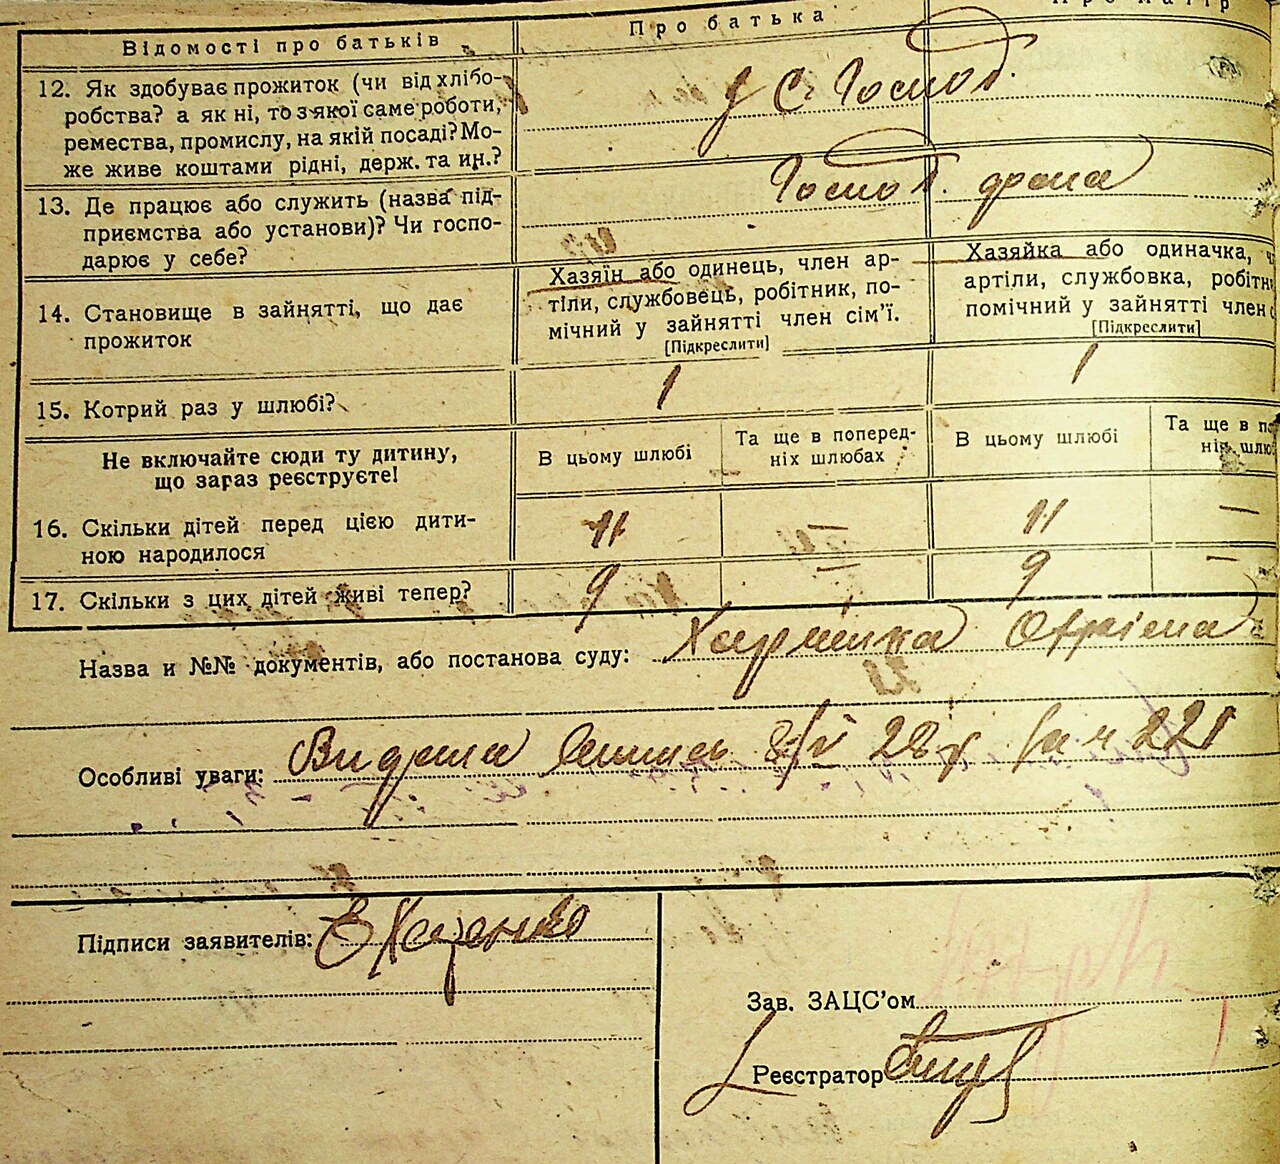 Відомості про батьків
Про батька
12. Як здобуває прожиток (чи від хлібо-
робства? а як ні, то з якої саме роботи,
ремества, промислу, на якій посаді? Мо-
же живе коштами рідні, держ. та ин.?
С. Госпо
13. Де працює або служить (назва під-
приємства або установи)? Чи госпо-
дарює у себе?
14. Становище в зайнятті, що дає
прожиток
Хазяїн або одинець, член ар-
тіли, службовець, робітник, по-
мічний у зайнятті член сім'ї.
[Підкреслити]
Хазяйка або одиначка,
артіли, службовка, робітн
помічний у зайнятті член с
[Підкреслити]
15. Котрий раз у шлюбі?
1
1
Не включайте сюди ту дитину,
що зараз реєструєте!
В цьому шлюбі
Та ще в поперед-
ніх шлюбах
В цьому шлюбі
Та ще в по
ніх шлю
16. Скільки дітей перед цією дити-
ною народилося
11
—
11
—
17. Скільки з цих дітей живі тепер?
9
—
9
—
Назва и №№ документів, або постанова суду:
Особливі уваги: Видана 28 р 221
Підписи заявителів:
Зав. ЗАЦС'ом
Реєстратор